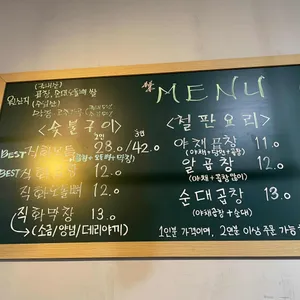 원산지
MENU
<숯불구이>
2인 3인
BEST 직화모듬 28.0/42.0
BEST 직화곱창 12.0
직화오돌뼈 12.0
직화막창 13.0
(소금/양념/데리야끼)
<철판요리>
야채곱창 11.0
(야채+당면+곱창)
알곱창 12.0
(야채+곱창많이)
순대곱창 13.0
(야채곱창+순대)
1인분 가격이며, 2인분 이상 주문 가능